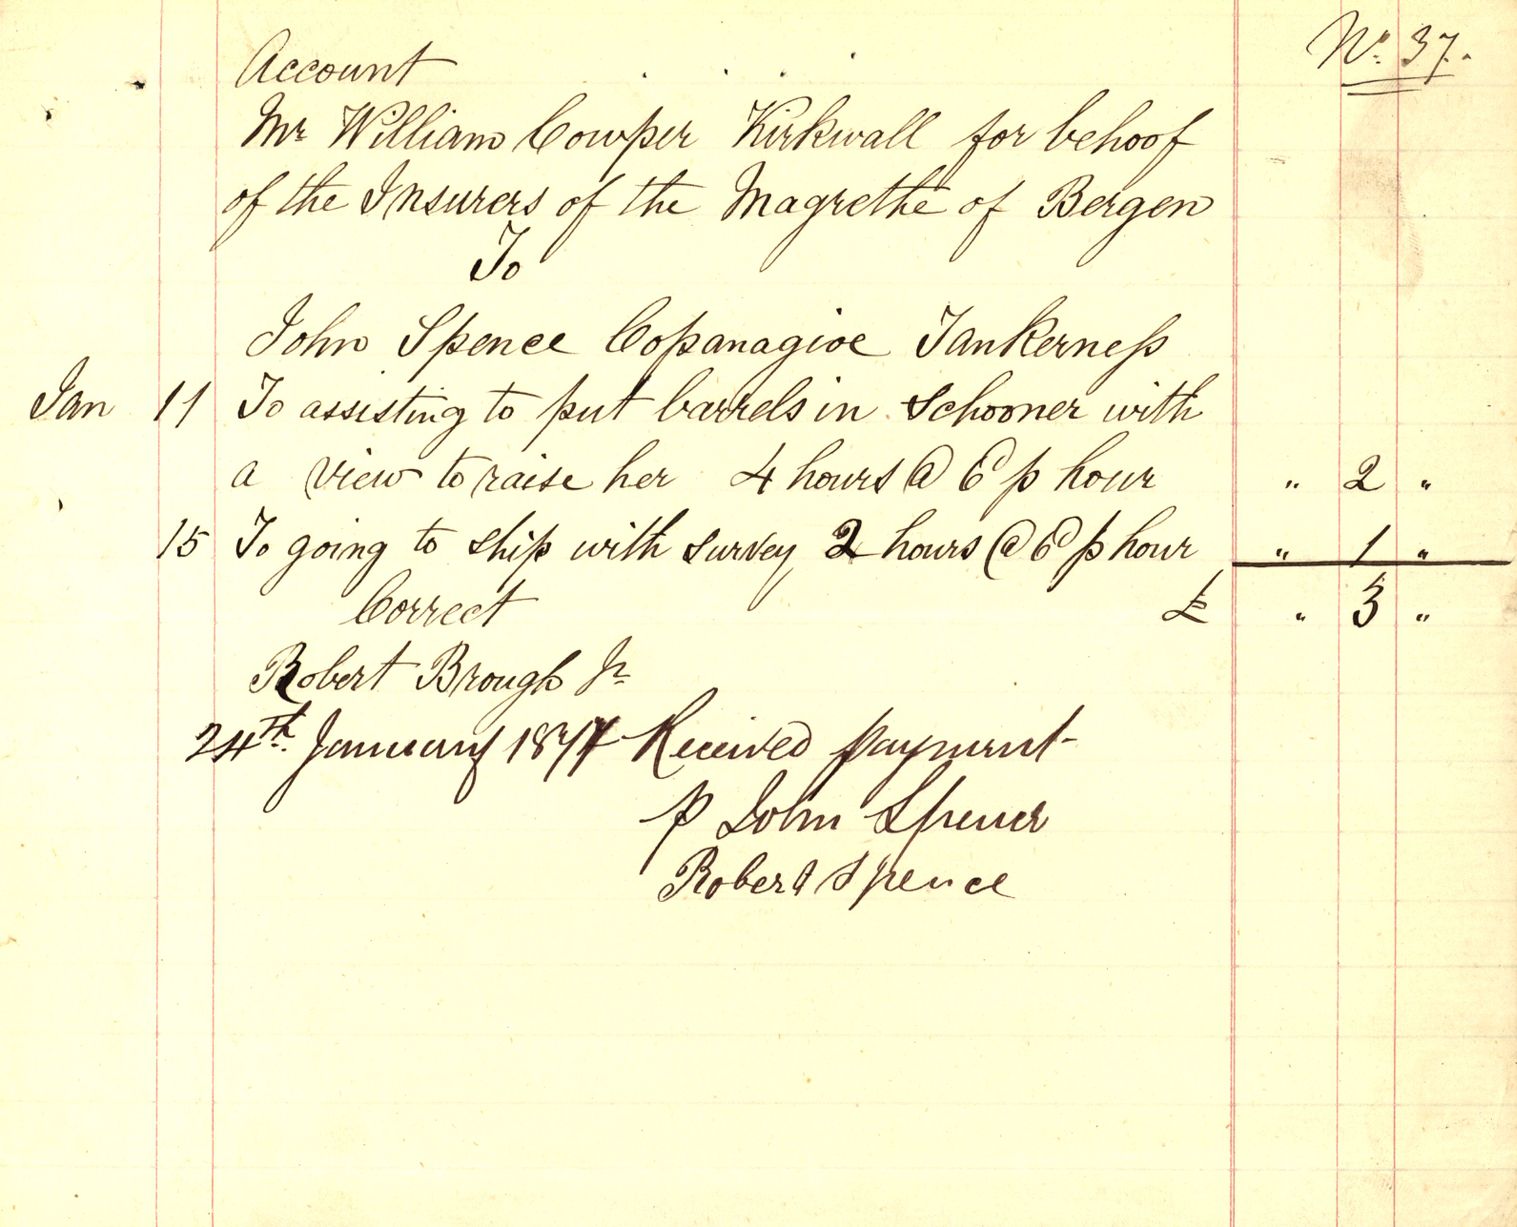 No. 37.
Account
Mr William Cowper Kirkwall for behoof
of the Insurers of the Magrethe of Bergen
To
John Spence Copanagioe Tankerness
Jan 11 To assisting to put barrels in Schooner with
a view to raise her 4 hours @ 6d p hour " 2 "
15 To going to ship with survey 2 hours @ 6d p hour " 1 "
Correct £ " 3 "
Robert Brough Jr
24th. January 1877 Received payment
p John Spence
Robert Spence